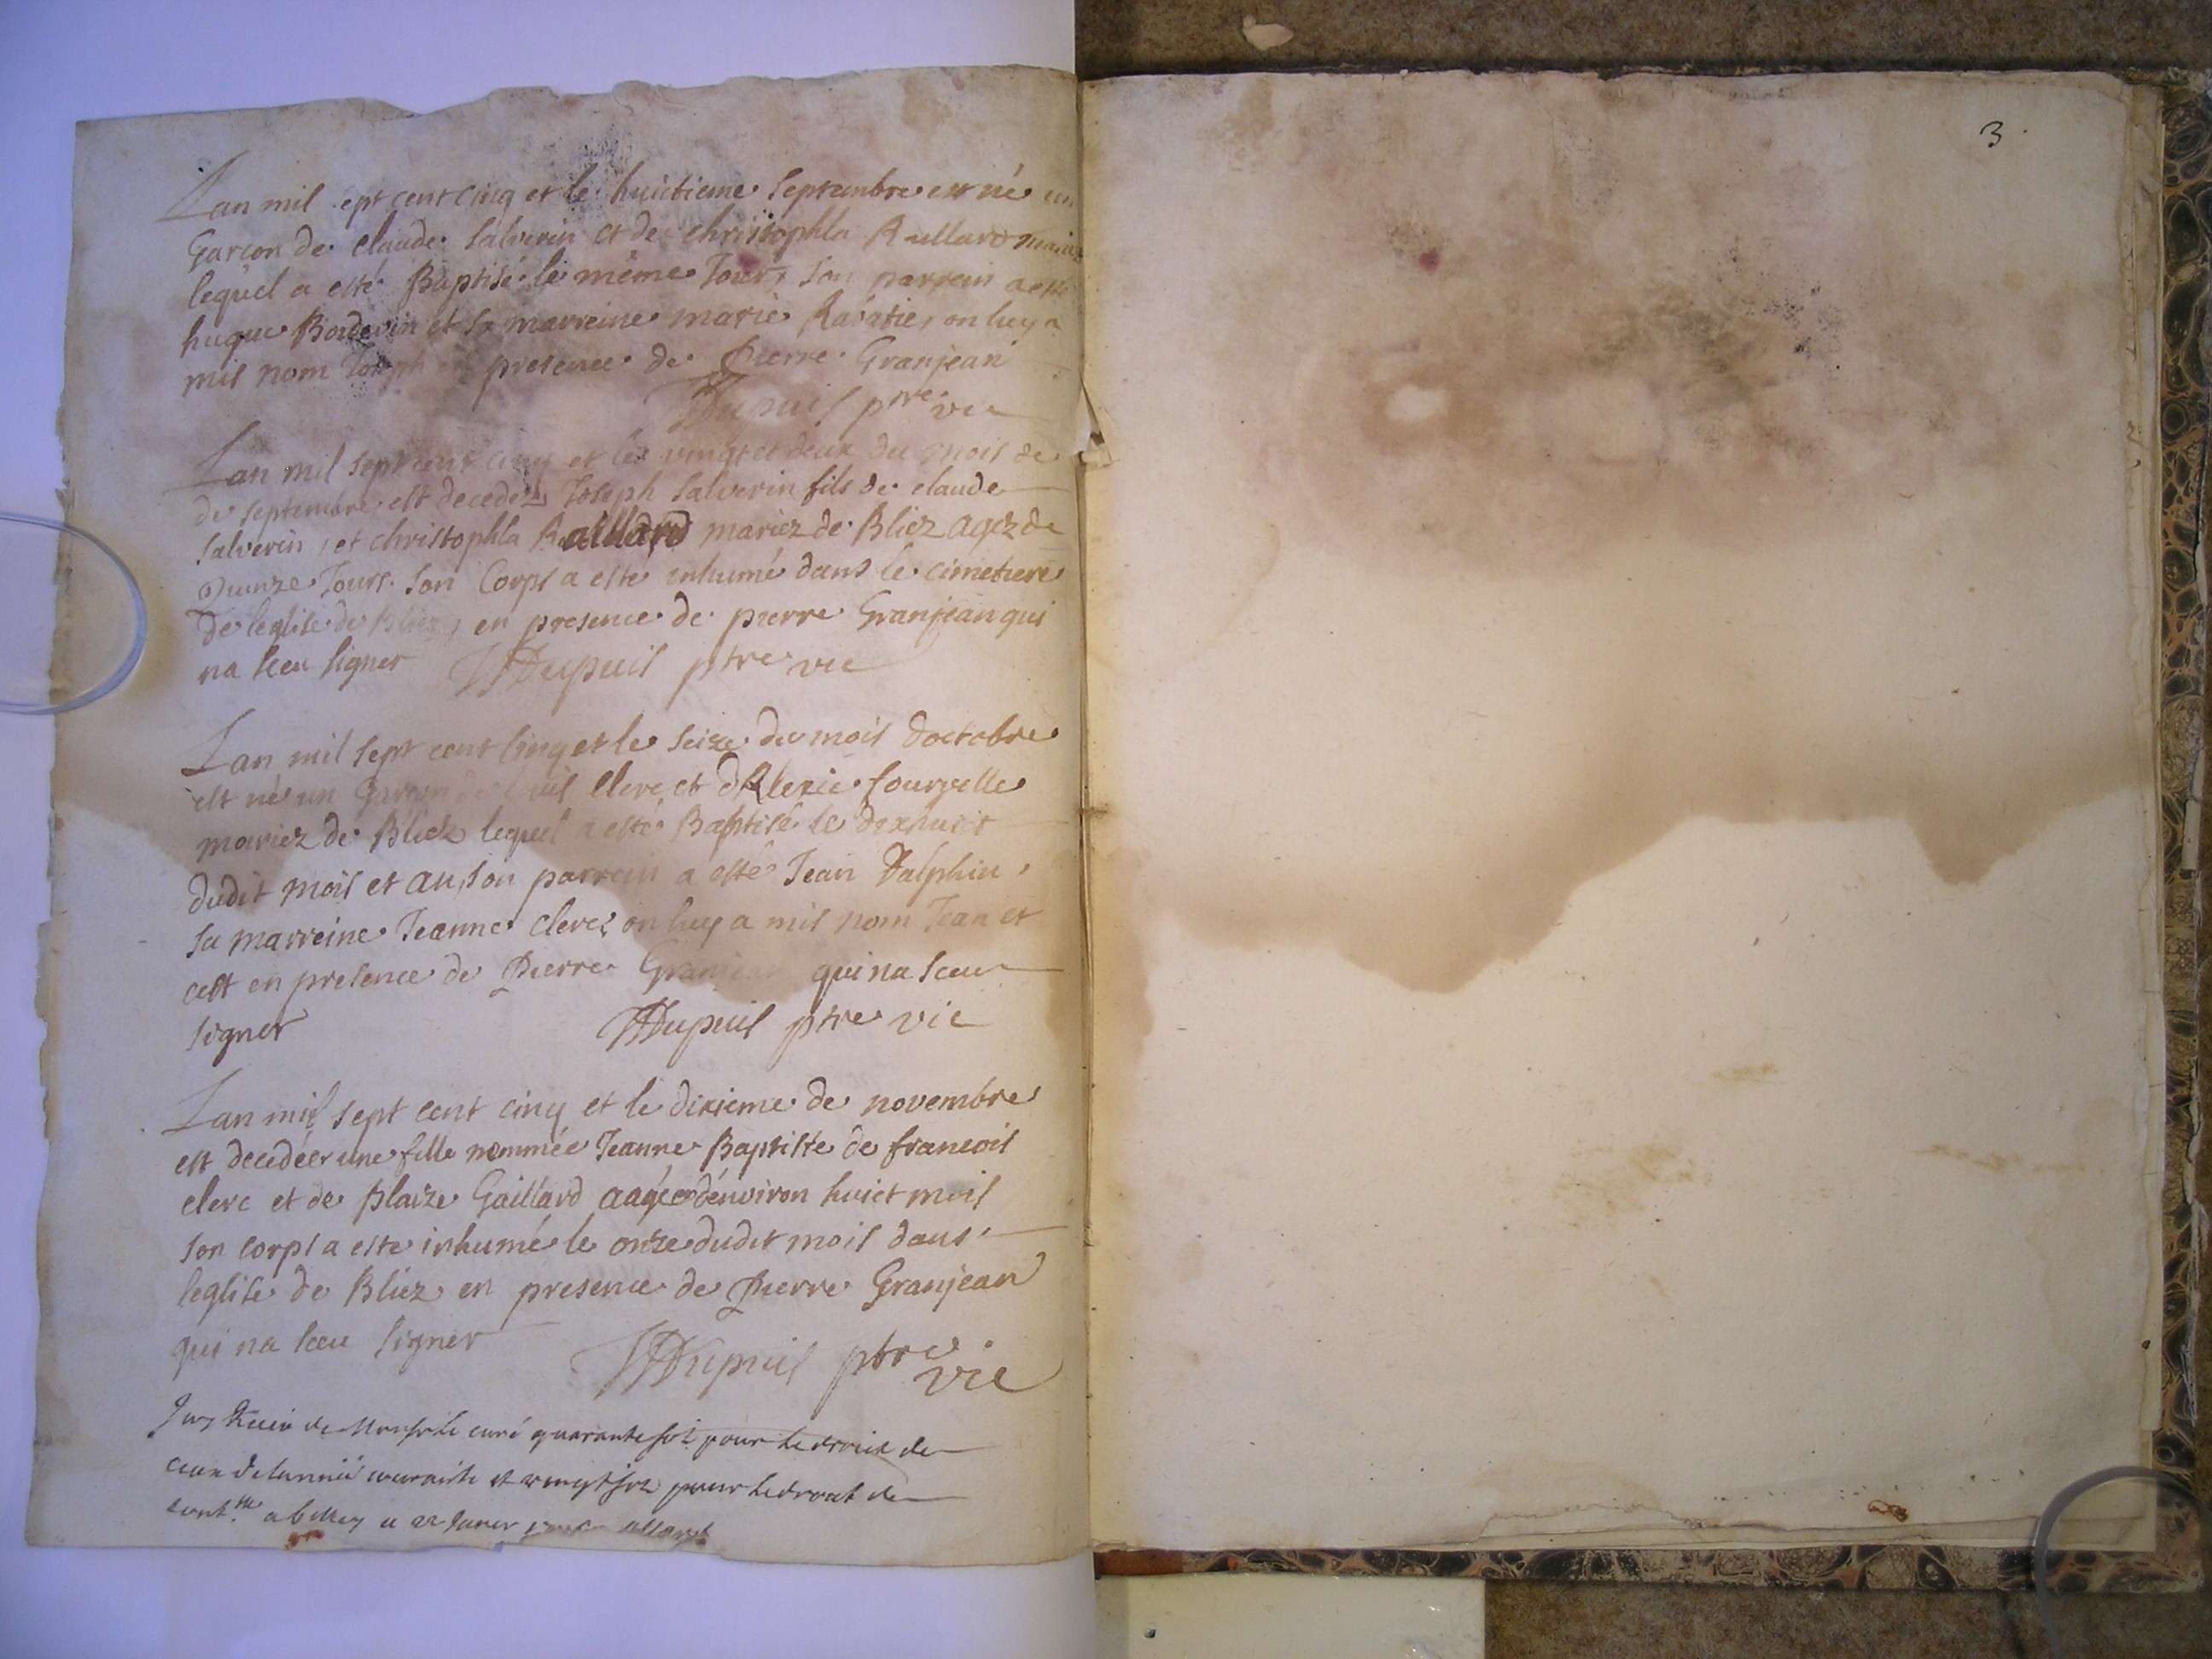 Lan mil sept cent cinq et le huictieme Septembre est né un
Garcon de claude Salverin et de christophla Raillard mariez
lequel a esté Baptisé le méme Jour, Son parrein a esté
hugue et Sa marreine marie on luy a
mis nom Joseph en presence de Pierre Granjean
Dupuis ptre vic
Lan mil Sept cent cinq et le vingt et deux du mois de
de Septembre est decedez Joseph Salverin fils de claude
Salverin, et christophla Raillard mariez de Bliez agez de
Quinze Jours. Son Corps a esté inhumé dans le cimetiere
De leglise de Bliez, en presence de pierre Granjean qui
na sceu signer Dupuis ptre vic
Lan mil Sept cent Cinq et le Seize du mois doctobre
est né un Garcon de Clerc et dAlexie
mariez de Bliez lequel a esté Baptisé le dixhuict
dudit mois et an, Son parrein a esté Jean Dalphin,
Sa marreine Jeanne Clerc, on luy a mis nom Jean et
cest en presence de Pierre Granjean qui na sceu
signer Dupuis ptre vic
Lan mil Sept cent cinq et le dixieme de novembre
est decedée une fille nommée Jeanne Baptiste de francois
clerc et de plaize Gaillard aagée denviron huict mois
Son corps a esté inhumé le onze dudit mois dans
leglise de Bliez en presence de Pierre Granjean
qui na sceu signer Dupuis ptre vic
de le curé quarante sol pour le droict de
courante et vingt sol pour le droict de
3